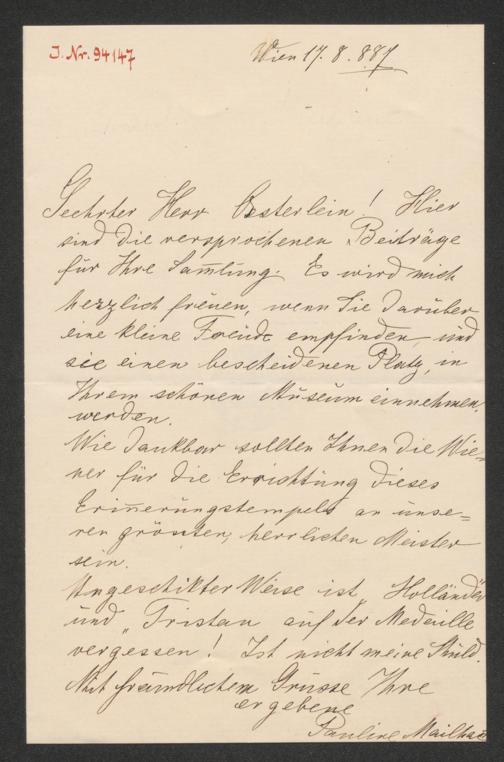 J. Nr. 94147
Wien 17. 8. 887
Geehrter Herr Oesterlein! Hier
sind die versprochenen Beiträge
für Ihre Sam̅lung. Es wird mich
herzlich freuen, wenn Sie darüber
eine kleine Freude empfinden und
sie einen bescheidenen Platz, in
Ihrem schönen Museum einnehmen,
werden.
Wie dankbar sollten Ihnen die Wie=
ner für die Errichtung dieses
Erin̅erungstempels an unse=
ren grössten, herrlichen Meister
sein.
Ungeschikter Weise ist „Holländer
und „Tristan auf der Medaille
vergessen! Ist nicht meine Schuld.
Mit freundlichem Grüsse Ihre
ergebene
Pauline Mailhac